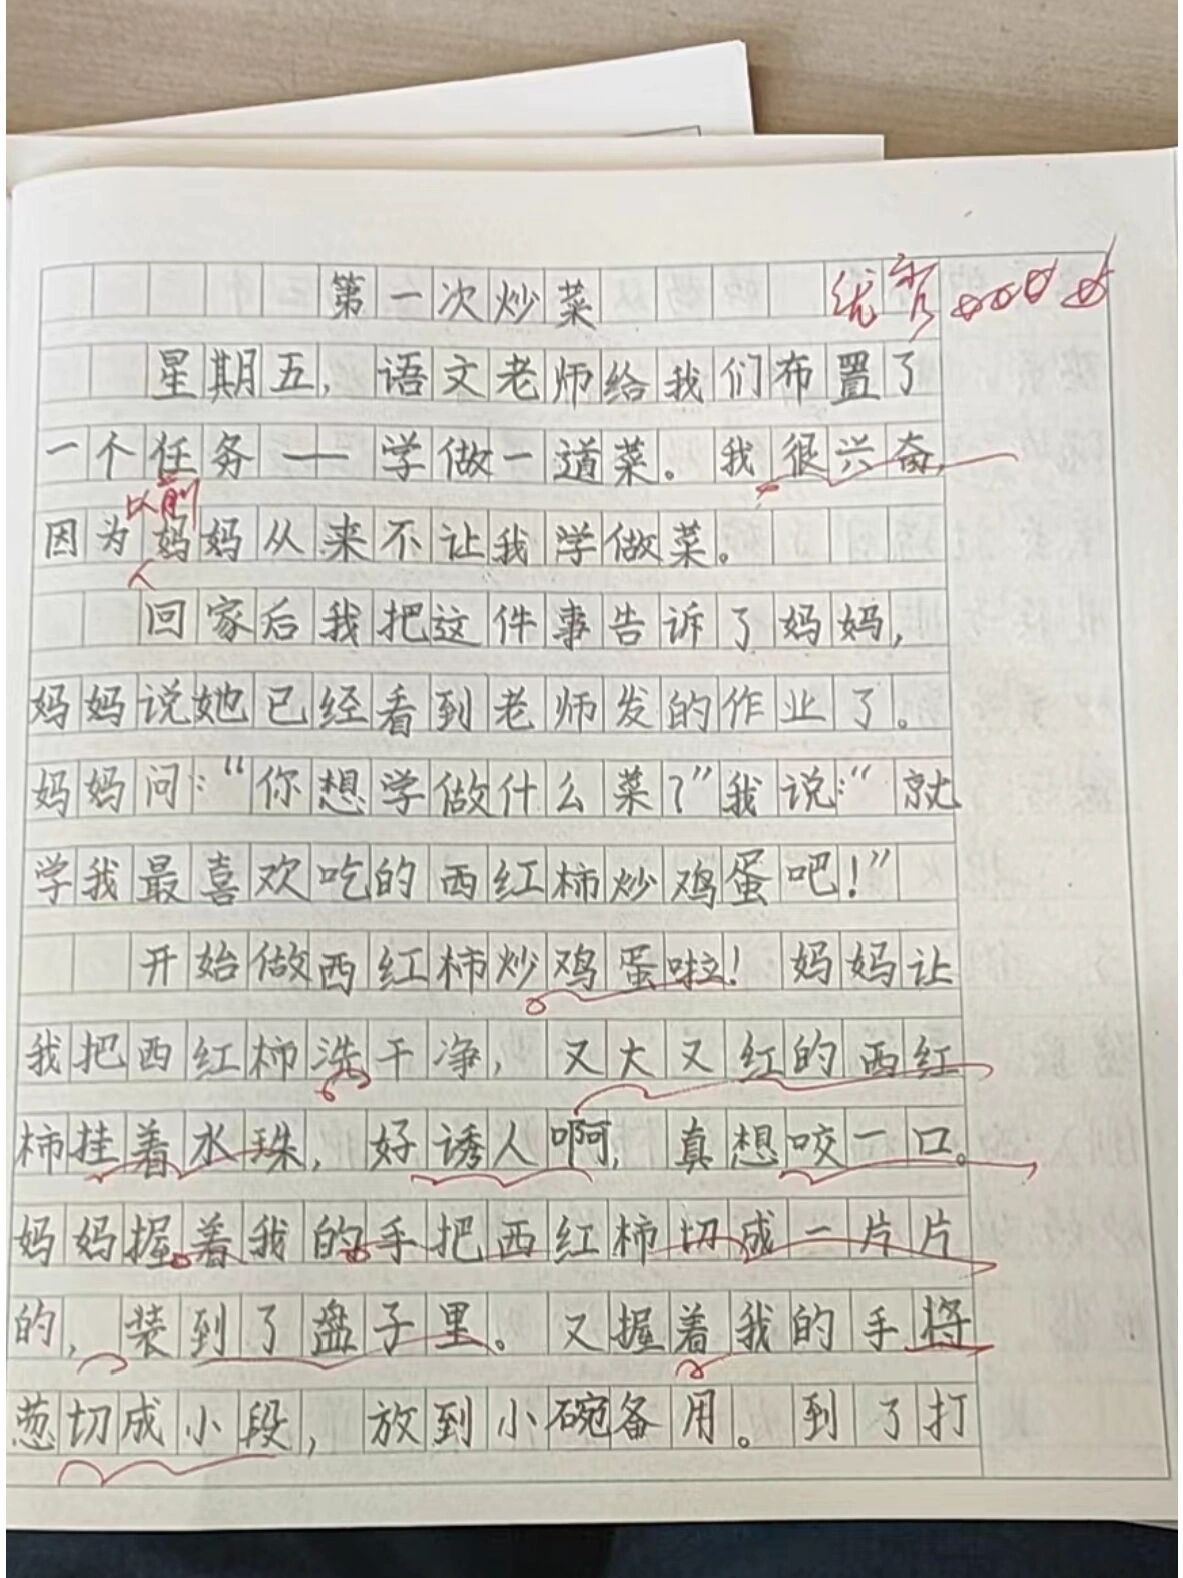 第一次炒菜 优秀☆☆☆☆
星期五，语文老师给我们布置了
一个任务——学做一道菜。我很兴奋，
以前
因为妈妈从来不让我学做菜。
回家后我把这件事告诉了妈妈，
妈妈说她已经看到老师发的作业了。
妈妈问：“你想学做什么菜？”我说：“就
学我最喜欢吃的西红柿炒鸡蛋吧！”
开始做西红柿炒鸡蛋啦！妈妈让
我把西红柿洗干净，又大又红的西红
柿挂着水珠，好诱人啊，真想咬一口。
妈妈握着我的手把西红柿切成一片片
的，装到了盘子里。又握着我的手将
葱切成小段，放到小碗备用。到了打